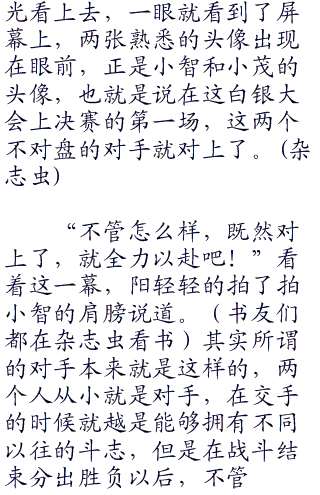 光看上去，一眼就看到了屏
幕上，两张熟悉的头像出现
在眼前，正是小智和小茂的
头像，也就是说在这白银大
会上决赛的第一场，这两个
不对盘的对手就对上了。(杂
志虫)
“不管怎么样，既然对
上了，就全力以赴吧！”看
着这一幕，阳轻轻的拍了拍
小智的肩膀说道。（书友们
都在杂志虫看书）其实所谓
的对手本来就是这样的，两
个人从小就是对手，在交手
的时候就越是能够拥有不同
以往的斗志，但是在战斗结
束分出胜负以后，不管